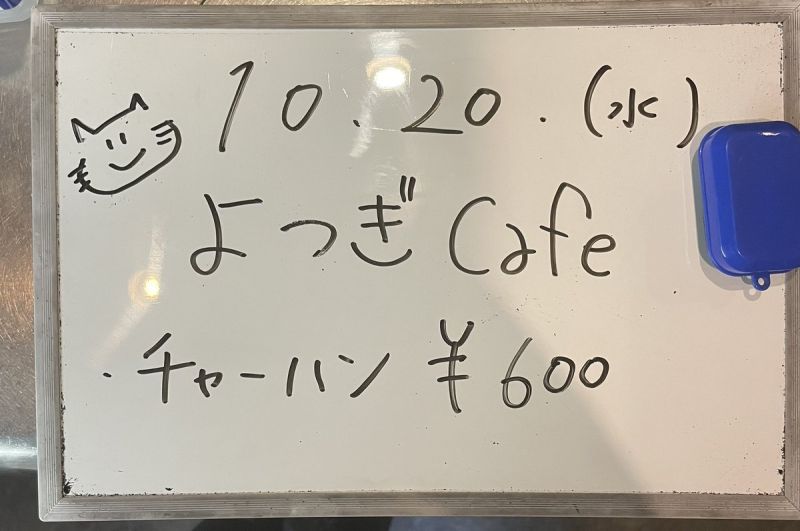 10.20.(水)
よつぎCafe
・チャーハン ¥600